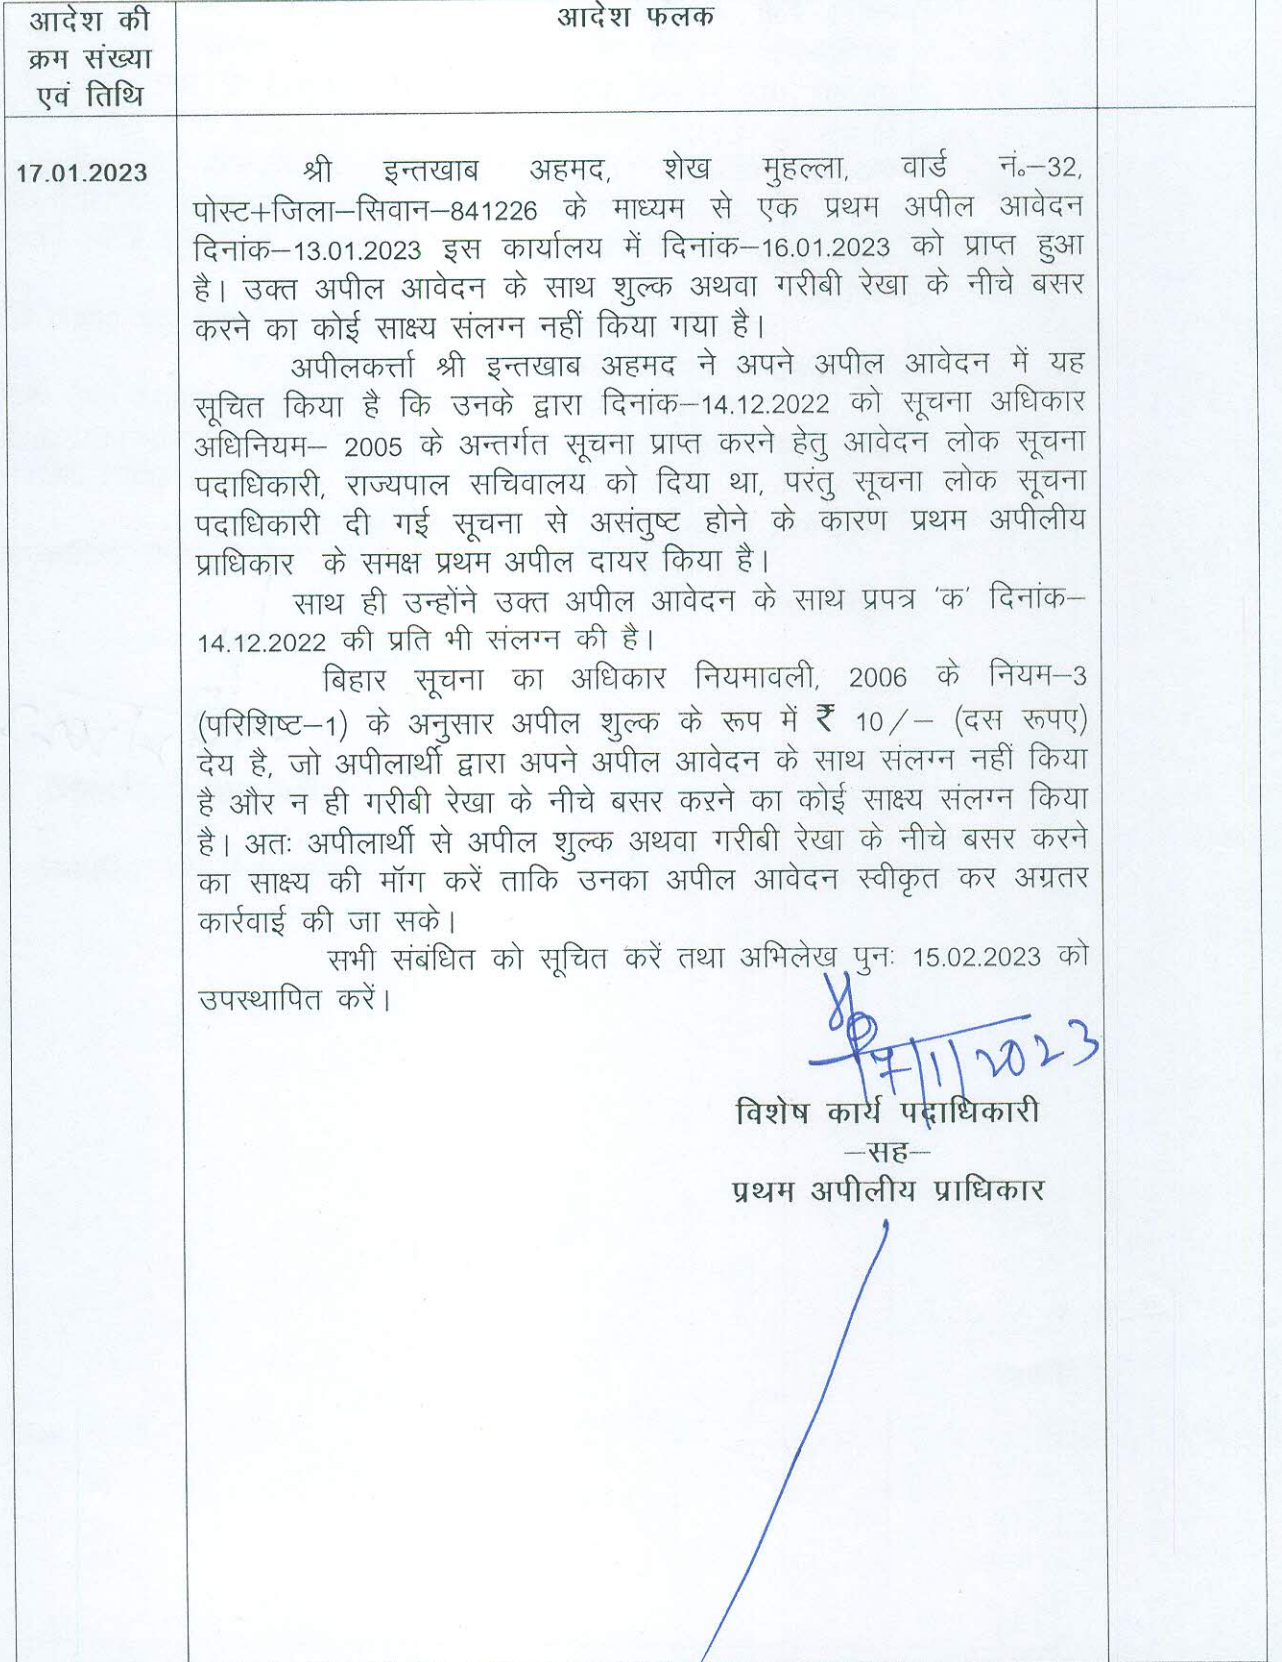 आदेश की
क्रम संख्या
एवं तिथि
आदेश फलक
17.01.2023
श्री इन्तखाब अहमद, शेख मुहल्ला, वार्ड नं०–32,
पोस्ट+जिला–सिवान–841226 के माध्यम से एक प्रथम अपील आवेदन
दिनांक–13.01.2023 इस कार्यालय में दिनांक–16.01.2023 को प्राप्त हुआ
है। उक्त अपील आवेदन के साथ शुल्क अथवा गरीबी रेखा के नीचे बसर
करने का कोई साक्ष्य संलग्न नहीं किया गया है।
अपीलकर्त्ता श्री इन्तखाब अहमद ने अपने अपील आवेदन में यह
सूचित किया है कि उनके द्वारा दिनांक–14.12.2022 को सूचना अधिकार
अधिनियम– 2005 के अन्तर्गत सूचना प्राप्त करने हेतु आवेदन लोक सूचना
पदाधिकारी, राज्यपाल सचिवालय को दिया था, परंतु सूचना लोक सूचना
पदाधिकारी दी गई सूचना से असंतुष्ट होने के कारण प्रथम अपीलीय
प्राधिकार के समक्ष प्रथम अपील दायर किया है।
साथ ही उन्होंने उक्त अपील आवेदन के साथ प्रपत्र 'क' दिनांक–
14.12.2022 की प्रति भी संलग्न की है।
बिहार सूचना का अधिकार नियमावली, 2006 के नियम–3
(परिशिष्ट–1) के अनुसार अपील शुल्क के रूप में ₹ 10/– (दस रूपए)
देय है, जो अपीलार्थी द्वारा अपने अपील आवेदन के साथ संलग्न नहीं किया
है और न ही गरीबी रेखा के नीचे बसर करने का कोई साक्ष्य संलग्न किया
है। अतः अपीलार्थी से अपील शुल्क अथवा गरीबी रेखा के नीचे बसर करने
का साक्ष्य की मॉग करें ताकि उनका अपील आवेदन स्वीकृत कर अग्रतर
कार्रवाई की जा सके।
सभी संबंधित को सूचित करें तथा अभिलेख पुनः 15.02.2023 को
उपस्थापित करें।
17/1/2023
विशेष कार्य पदाधिकारी
–सह–
प्रथम अपीलीय प्राधिकार